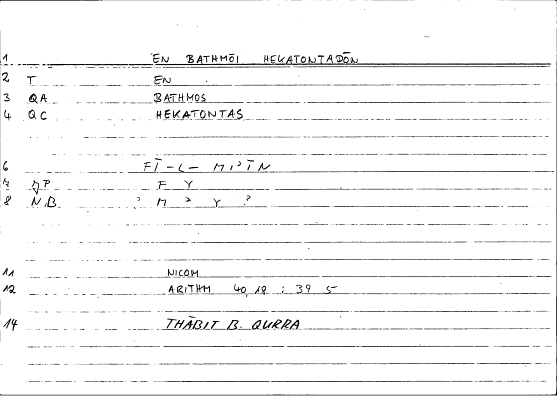 1 EN BATHMŌI HEKATONTADŌN
2 T EN
3 QA BATHMOS
4 QC HEKATONTAS
6 FĪ-L- MIʾĪN
7 P F Y
8 N.B. ʾ M ʾ Y ʾ
11 NICOM
12 ARITHM 40,18 : 39 5
14 THĀBIT B. QURRA